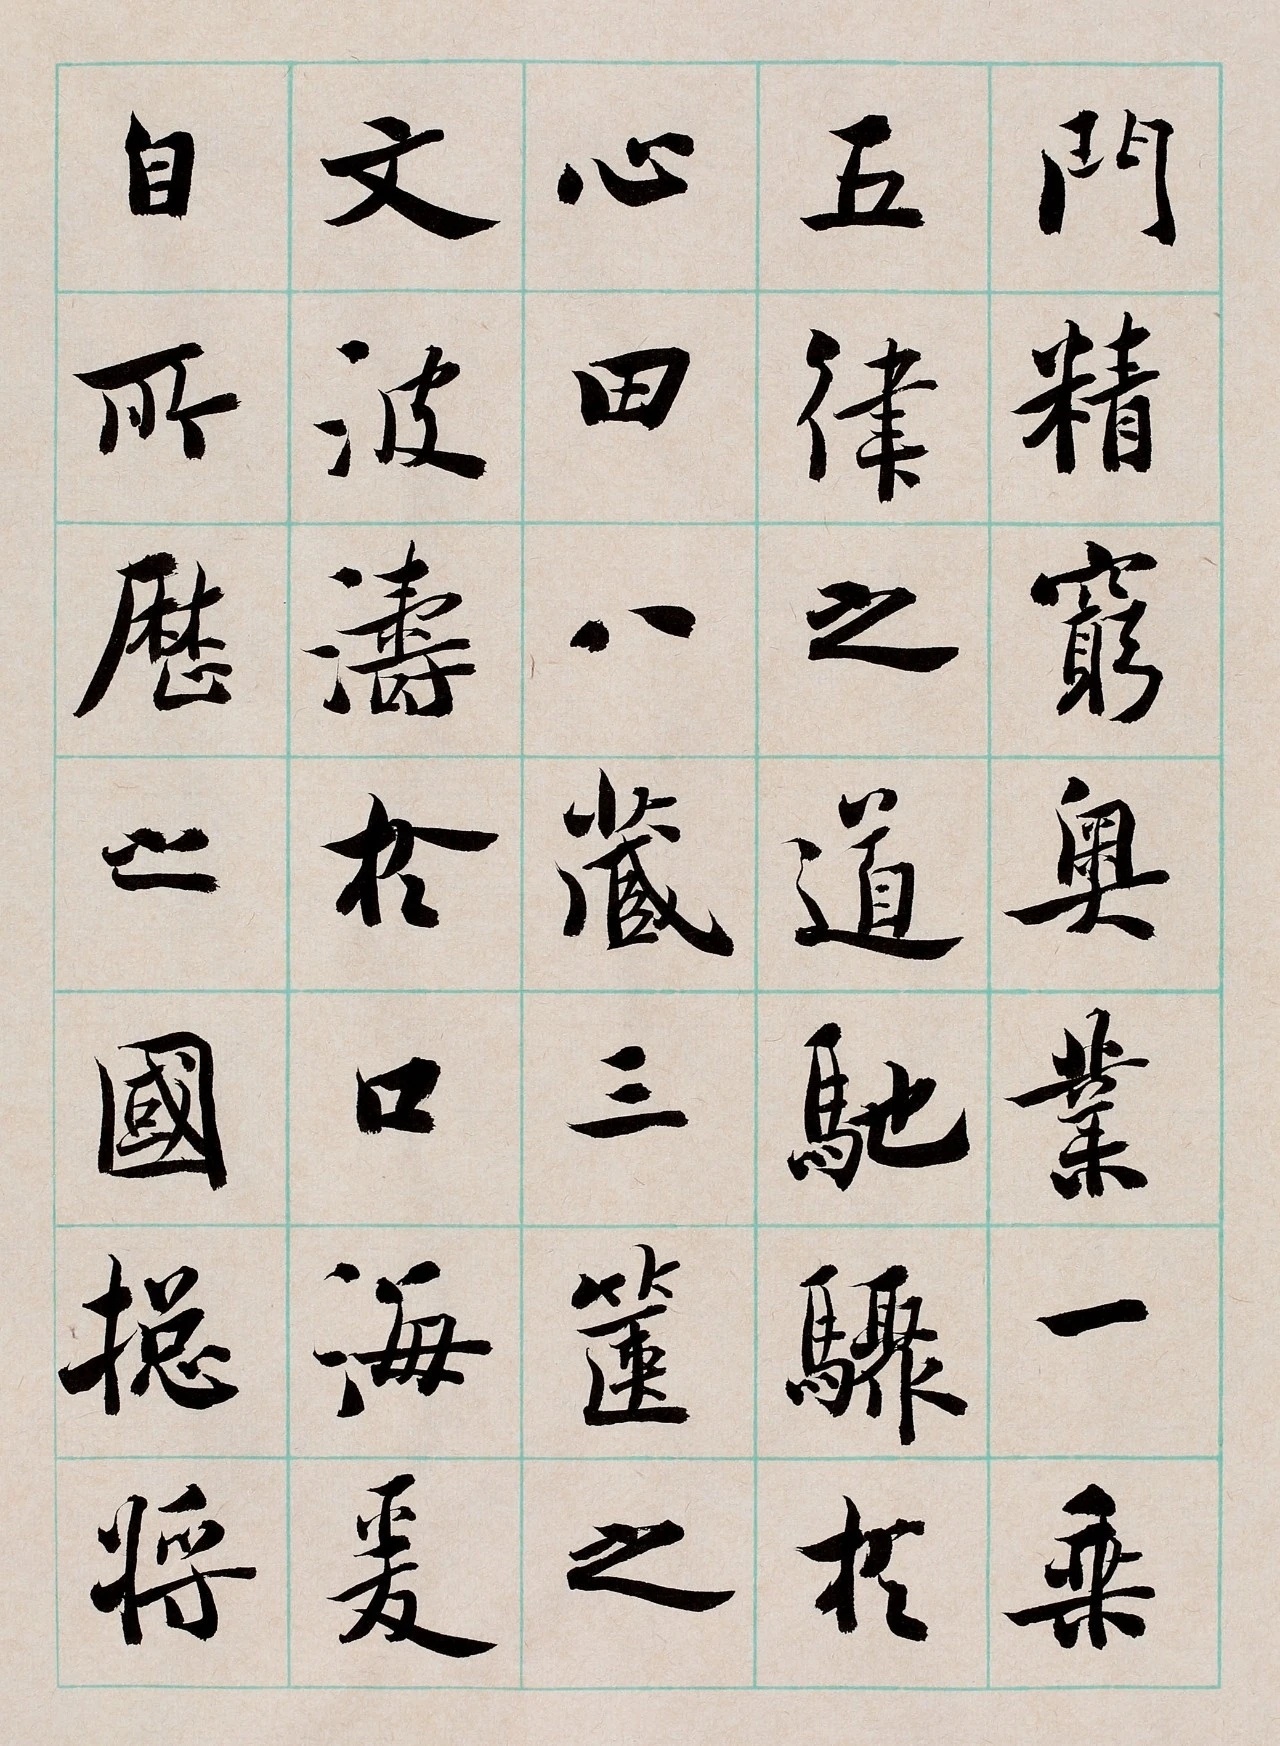 門精窮奧業一乘
五律之道馳驟於
心田八藏三篋之
文波濤於口海爰
自所歷之國捴將